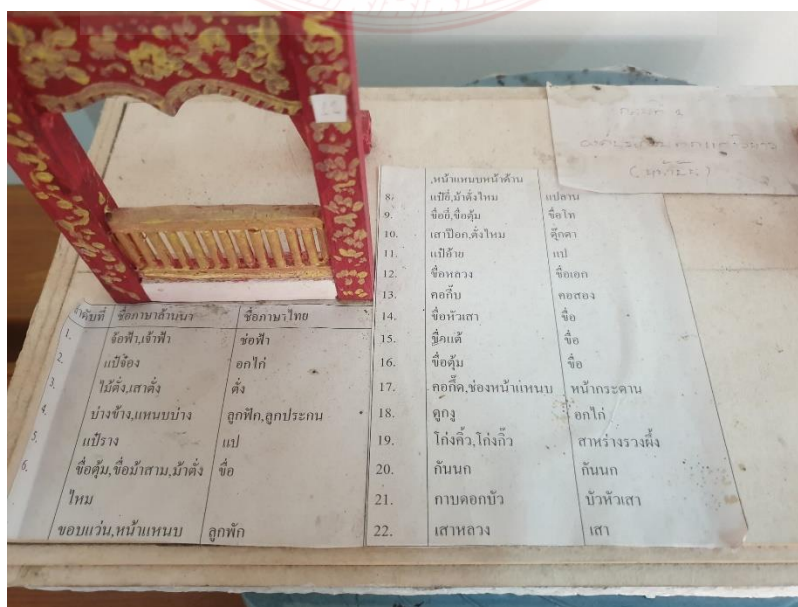 22
ลำดับที่ ชื่อภาษาล้านนา ชื่อภาษาไทย
1. จ้อฟ้า,เจ้าฟ้า ช่อฟ้า
2. แป๋จ๋อง อกไก่
3. ไม้ตั่ง,เสาตั้ง ตั่ง
4. บ่างข้าง,แหนบบ่าง ลูกฟัก,ลูกประกน
5. แป๋ราง แป
6. ขื่อตุ้ม,ขื่อม้าสาม,ม้าตั่ง ขื่อ
ไหม
ขอบแว่น,หน้าแหนบ ลูกพัก
,หน้าแหนบหน้าด้าน
8. แป๋ยี่,ม้าตั่งไหม แปลาน
9. ขื่อยี่,ขื่อตุ้ม ขื่อโท
10. เสาป๊อก,ตั่งไหม ตุ๊กตา
11. แป๋อ้าย แป
12. ขื่อหลวง ขื่อเอก
13. คอกี๊บ คอสอง
14. ขื่อหัวเสา ขื่อ
15. ขื่อแต้ ขื่อ
16. ขื่อตุ้ม ขื่อ
17. คอกี๊ด,ช่องหน้าแหนบ หน้ากระดาน
18. ดูกงู อกไก่
19. โก่งคิ้ว,โก่งกิ๊ว สาหร่างรวงผึ้ง
20. กันนก กันนก
21. กาบดอกบัว บัวหัวเสา
22. เสาหลวง เสา